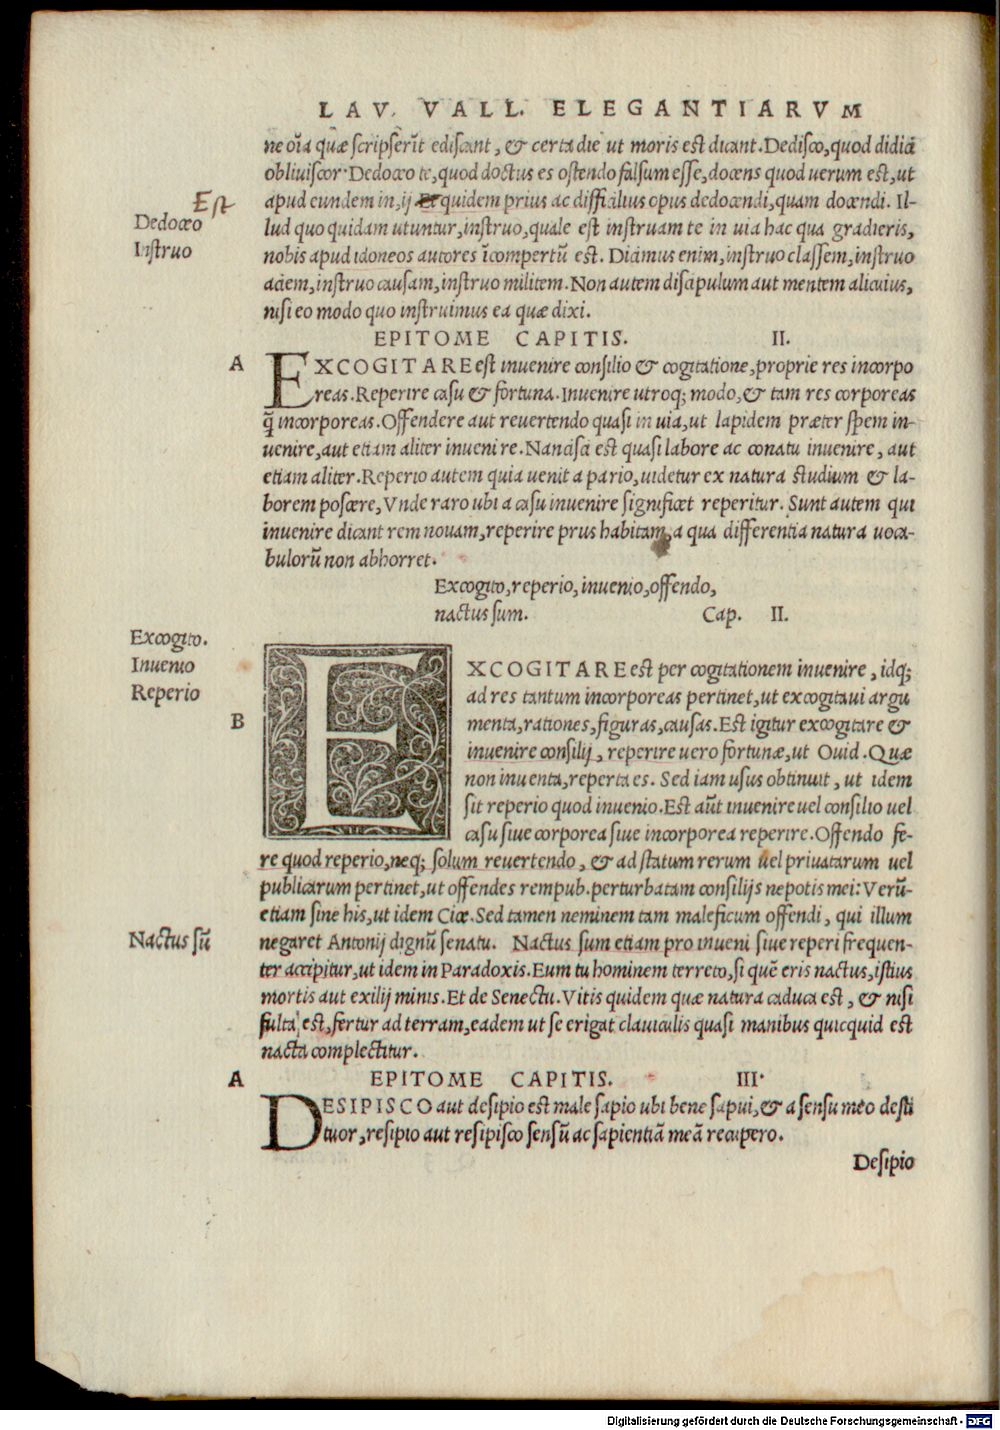 LAV. VALL. ELEGANTIARVM
ne oĩa quæ scripserĩt ediscant, & certa die ut moris est dicant. Dedisco, quod didici
obliuiscor. Dedoceo te, quod doctus es ostendo falsum esse, docens quod uerum est, ut
Est
apud eundem in, ij Et quidem prius ac difficilius opus dedocendi, quam docendi. Il-
Dedoceo
lud quo quidam utuntur, instruo, quale est instruam te in uia hac qua gradieris,
Instruo
nobis apud idoneos autores ĩcompertũ est. Dicimus enim, instruo classem, instruo
aciem, instruo causam, instruo militem. Non autem discipulum aut mentem alicuius,
nisi eo modo quo instruimus ea quæ dixi.
EPITOME CAPITIS. II.
A
EXCOGITARE est inuenire consilio & cogitatione, proprie res incorpo
reas. Reperire casu & fortuna. Inuenire utroq; modo, & tam res corporeas
q̃ incorporeas. Offendere aut reuertendo quasi in uia, ut lapidem præter spem in-
uenire, aut etiam aliter inuenire. Nancisci est quasi labore ac conatu inuenire, aut
etiam aliter. Reperio autem quia uenit a pario, uidetur ex natura studium & la-
borem poscere, Vnde raro ubi a casu inuenire significet reperitur. Sunt autem qui
inuenire dicant rem nouam, reperire prus habitam, a qua differentia natura uoca-
bulorũ non abhorret.
Excogito, reperio, inuenio, offendo,
nactus sum. Cap. II.
Excogito.
Inuenio
Reperio
B
EXCOGITARE est per cogitationem inuenire, idq;
ad res tantum incorporeas pertinet, ut excogitaui argu
menta, rationes, figuras, causas. Est igitur excogitare &
inuenire consilij, reperire uero fortunæ, ut Ouid. Quæ
non inuenta, reperta es. Sed iam usus obtinuit, ut idem
sit reperio quod inuenio. Est aũt inuenire uel consilio uel
casu siue corporea siue incorporea reperire. Offendo fe-
re quod reperio, neq; solum reuertendo, & ad statum rerum uel priuatarum uel
publicarum pertinet, ut offendes rempub. perturbatam consilijs nepotis mei: Verũ-
etiam sine his, ut idem Cice. Sed tamen neminem tam maleficum offendi, qui illum
Nactus sũ
negaret Antonij dignũ senatu. Nactus sum etiam pro inueni siue reperi frequen-
ter accipitur, ut idem in Paradoxis. Eum tu hominem terreto, si quẽ eris nactus, istius
mortis aut exilij minis. Et de Senectu. Vitis quidem quæ natura caduca est, & nisi
fulta est, fertur ad terram, eadem ut se erigat clauiculis quasi manibus quicquid est
nacta complectitur.
A
EPITOME CAPITIS. III.
DESIPISCO aut desipio est male sapio ubi bene sapui, & a sensu meo desti
tuor, resipio aut resipisco sensũ ac sapientiã meã recupero.
Desipio
Digitalisierung gefördert durch die Deutsche Forschungsgemeinschaft - DFG